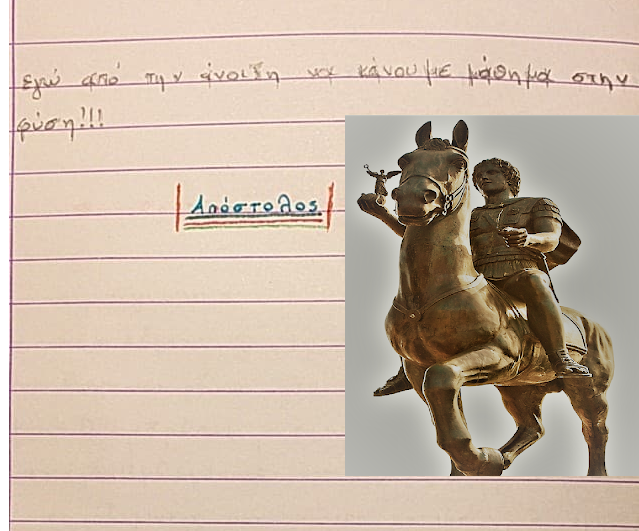 εγώ από την άνοιξη να κάνουμε μάθημα στην
φύση!!!
Απόστολος